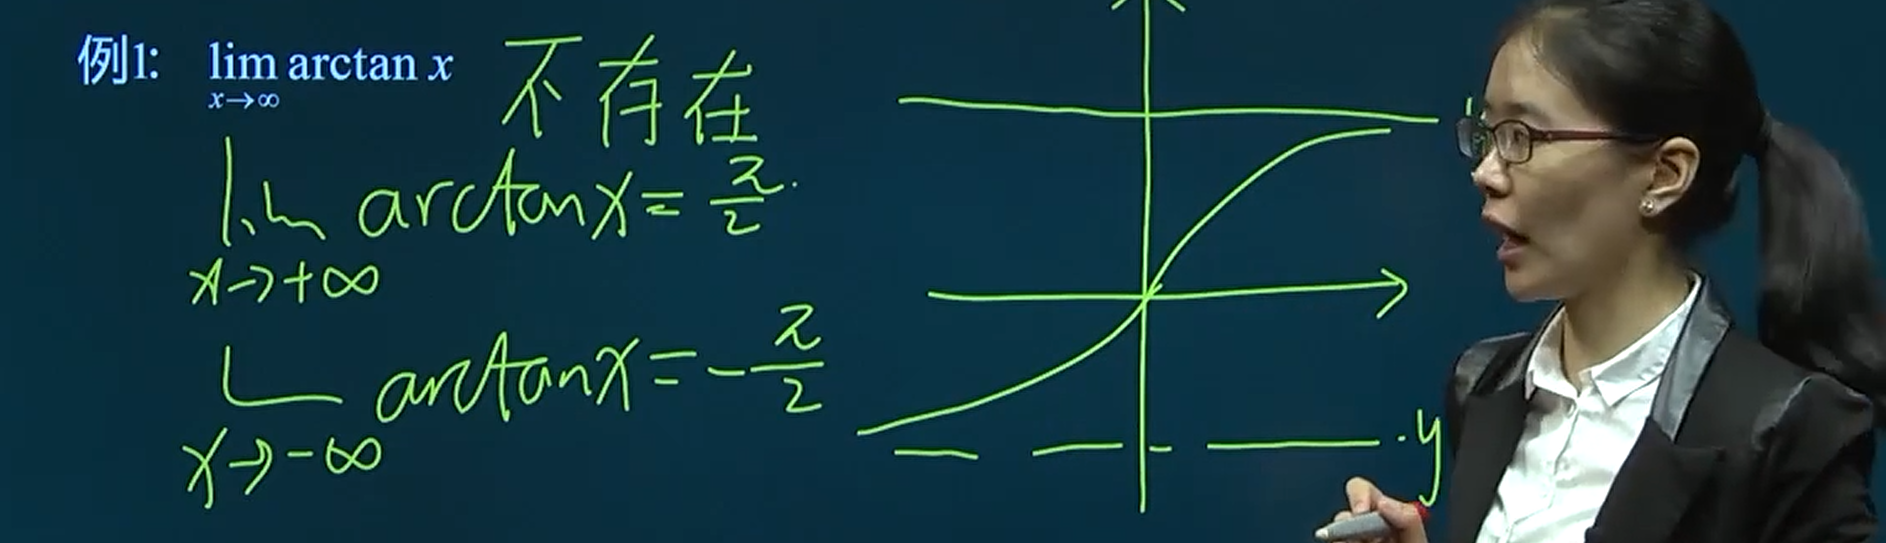 例1: lim arctan x 不存在
x→∞
lim arctanx = π/2
x→+∞
l arctanx = -π/2
x→-∞
y